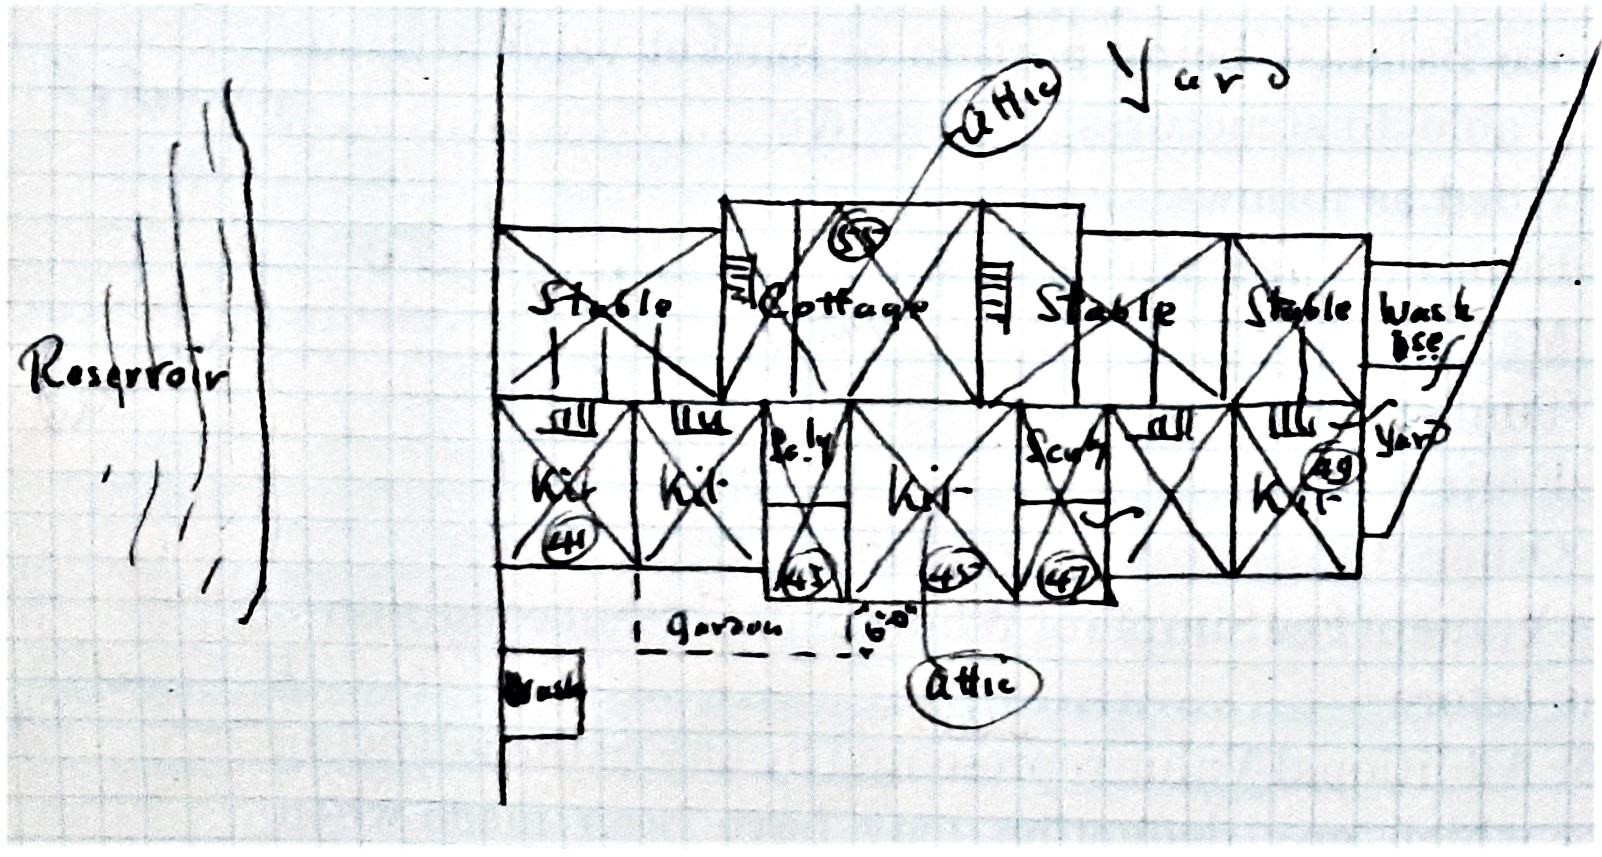 attic
Yard
55
Stable
Cottage
Stable
Stable
Wash
hse
Reservoir
Kit
Kit
Scly
Kit
Scuy
Kit
49
Yard
41
43
45
47
Garden
6'-0"
Wash
attic